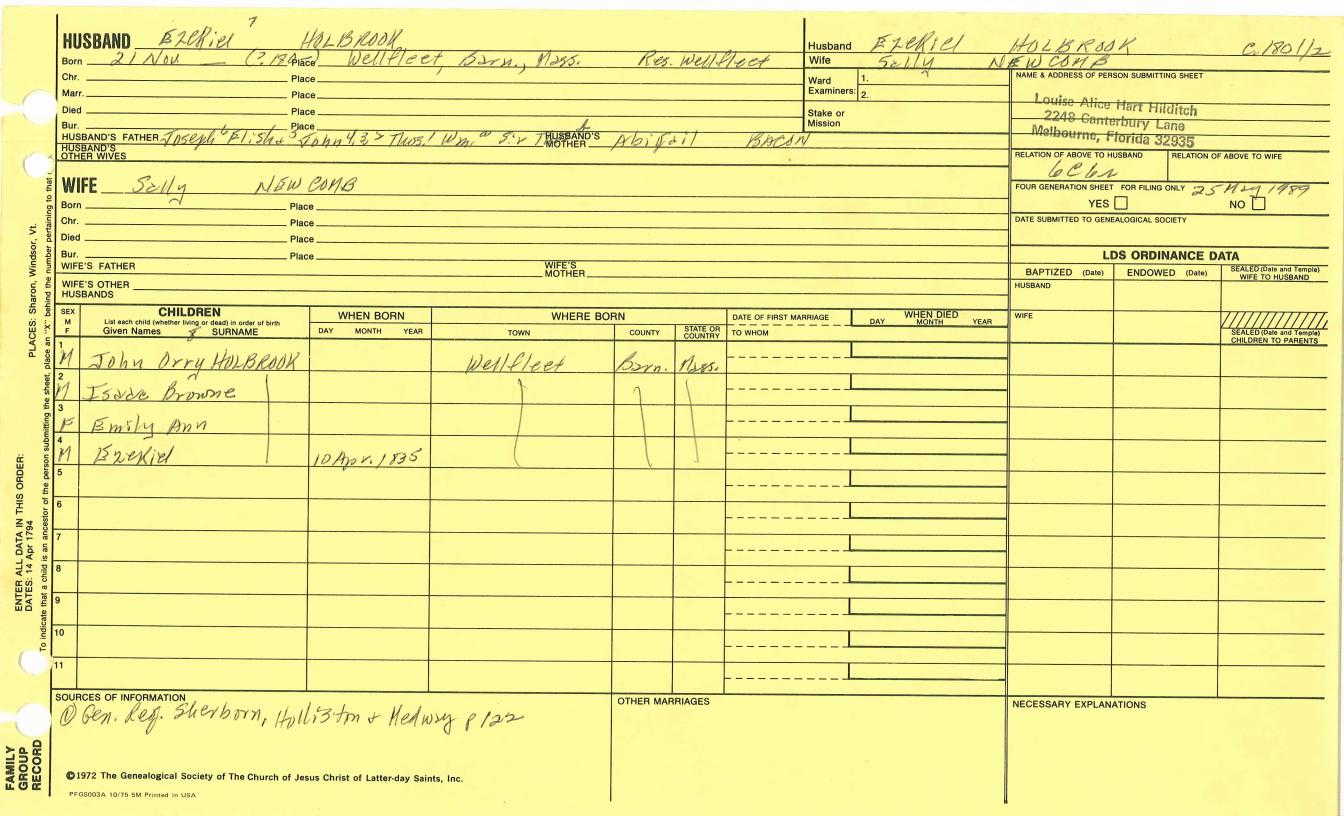 HUSBAND Ezekiel 7 HOLBROOK
Born 21 Nov Place Wellfleet, Barn., Mass. Res. Wellfleet
Chr. Place
Marr. Place
Died Place
Bur. Place
HUSBAND'S FATHER Joseph 6 Elisha 5 John 4 3 2 Thos. 1 Wm. Sir HUSBAND'S MOTHER Abigail BACON
HUSBAND'S OTHER WIVES
Husband Ezekiel HOLBROOK C. 1801/2
Wife Sally NEWCOMB
Ward Examiners: 1.
2.
Stake or Mission
NAME & ADDRESS OF PERSON SUBMITTING SHEET
Louise Alice Hart Hilditch
2249 Canterbury Lane
Melbourne, Florida 32935
RELATION OF ABOVE TO HUSBAND RELATION OF ABOVE TO WIFE
6C6r
FOUR GENERATION SHEET FOR FILING ONLY 25 May 1989
YES NO
DATE SUBMITTED TO GENEALOGICAL SOCIETY
WIFE Sally NEWCOMB
Born Place
Chr. Place
Died Place
Bur. Place
WIFE'S FATHER WIFE'S MOTHER
WIFE'S OTHER HUSBANDS
LDS ORDINANCE DATA
BAPTIZED (Date) ENDOWED (Date) SEALED (Date and Temple) WIFE TO HUSBAND
HUSBAND
WIFE
SEALED (Date and Temple) CHILDREN TO PARENTS
SEX M F CHILDREN WHEN BORN WHERE BORN DATE OF FIRST MARRIAGE WHEN DIED
List each child (whether living or dead) in order of birth
Given Names 8 SURNAME DAY MONTH YEAR TOWN COUNTY STATE OR COUNTRY TO WHOM DAY MONTH YEAR
1 M John Orry HOLBROOK Wellfleet Barn. Mass.
2 M Isaac Browne
3 F Emily Ann
4 M Ezekiel 10 Apr. 1835
5
6
7
8
9
10
11
SOURCES OF INFORMATION
① Gen. Reg. Sherborn, Holliston & Medway p 122
OTHER MARRIAGES
NECESSARY EXPLANATIONS
©1972 The Genealogical Society of The Church of Jesus Christ of Latter-day Saints, Inc.
PFGS003A 10/75 5M Printed in USA
FAMILY GROUP RECORD
ENTER ALL DATA IN THIS ORDER:
DATES: 14 Apr 1794
PLACES: Sharon, Windsor, Vt.
To indicate that a child is an ancestor of the person submitting the sheet, place an "X" behind the number pertaining to that